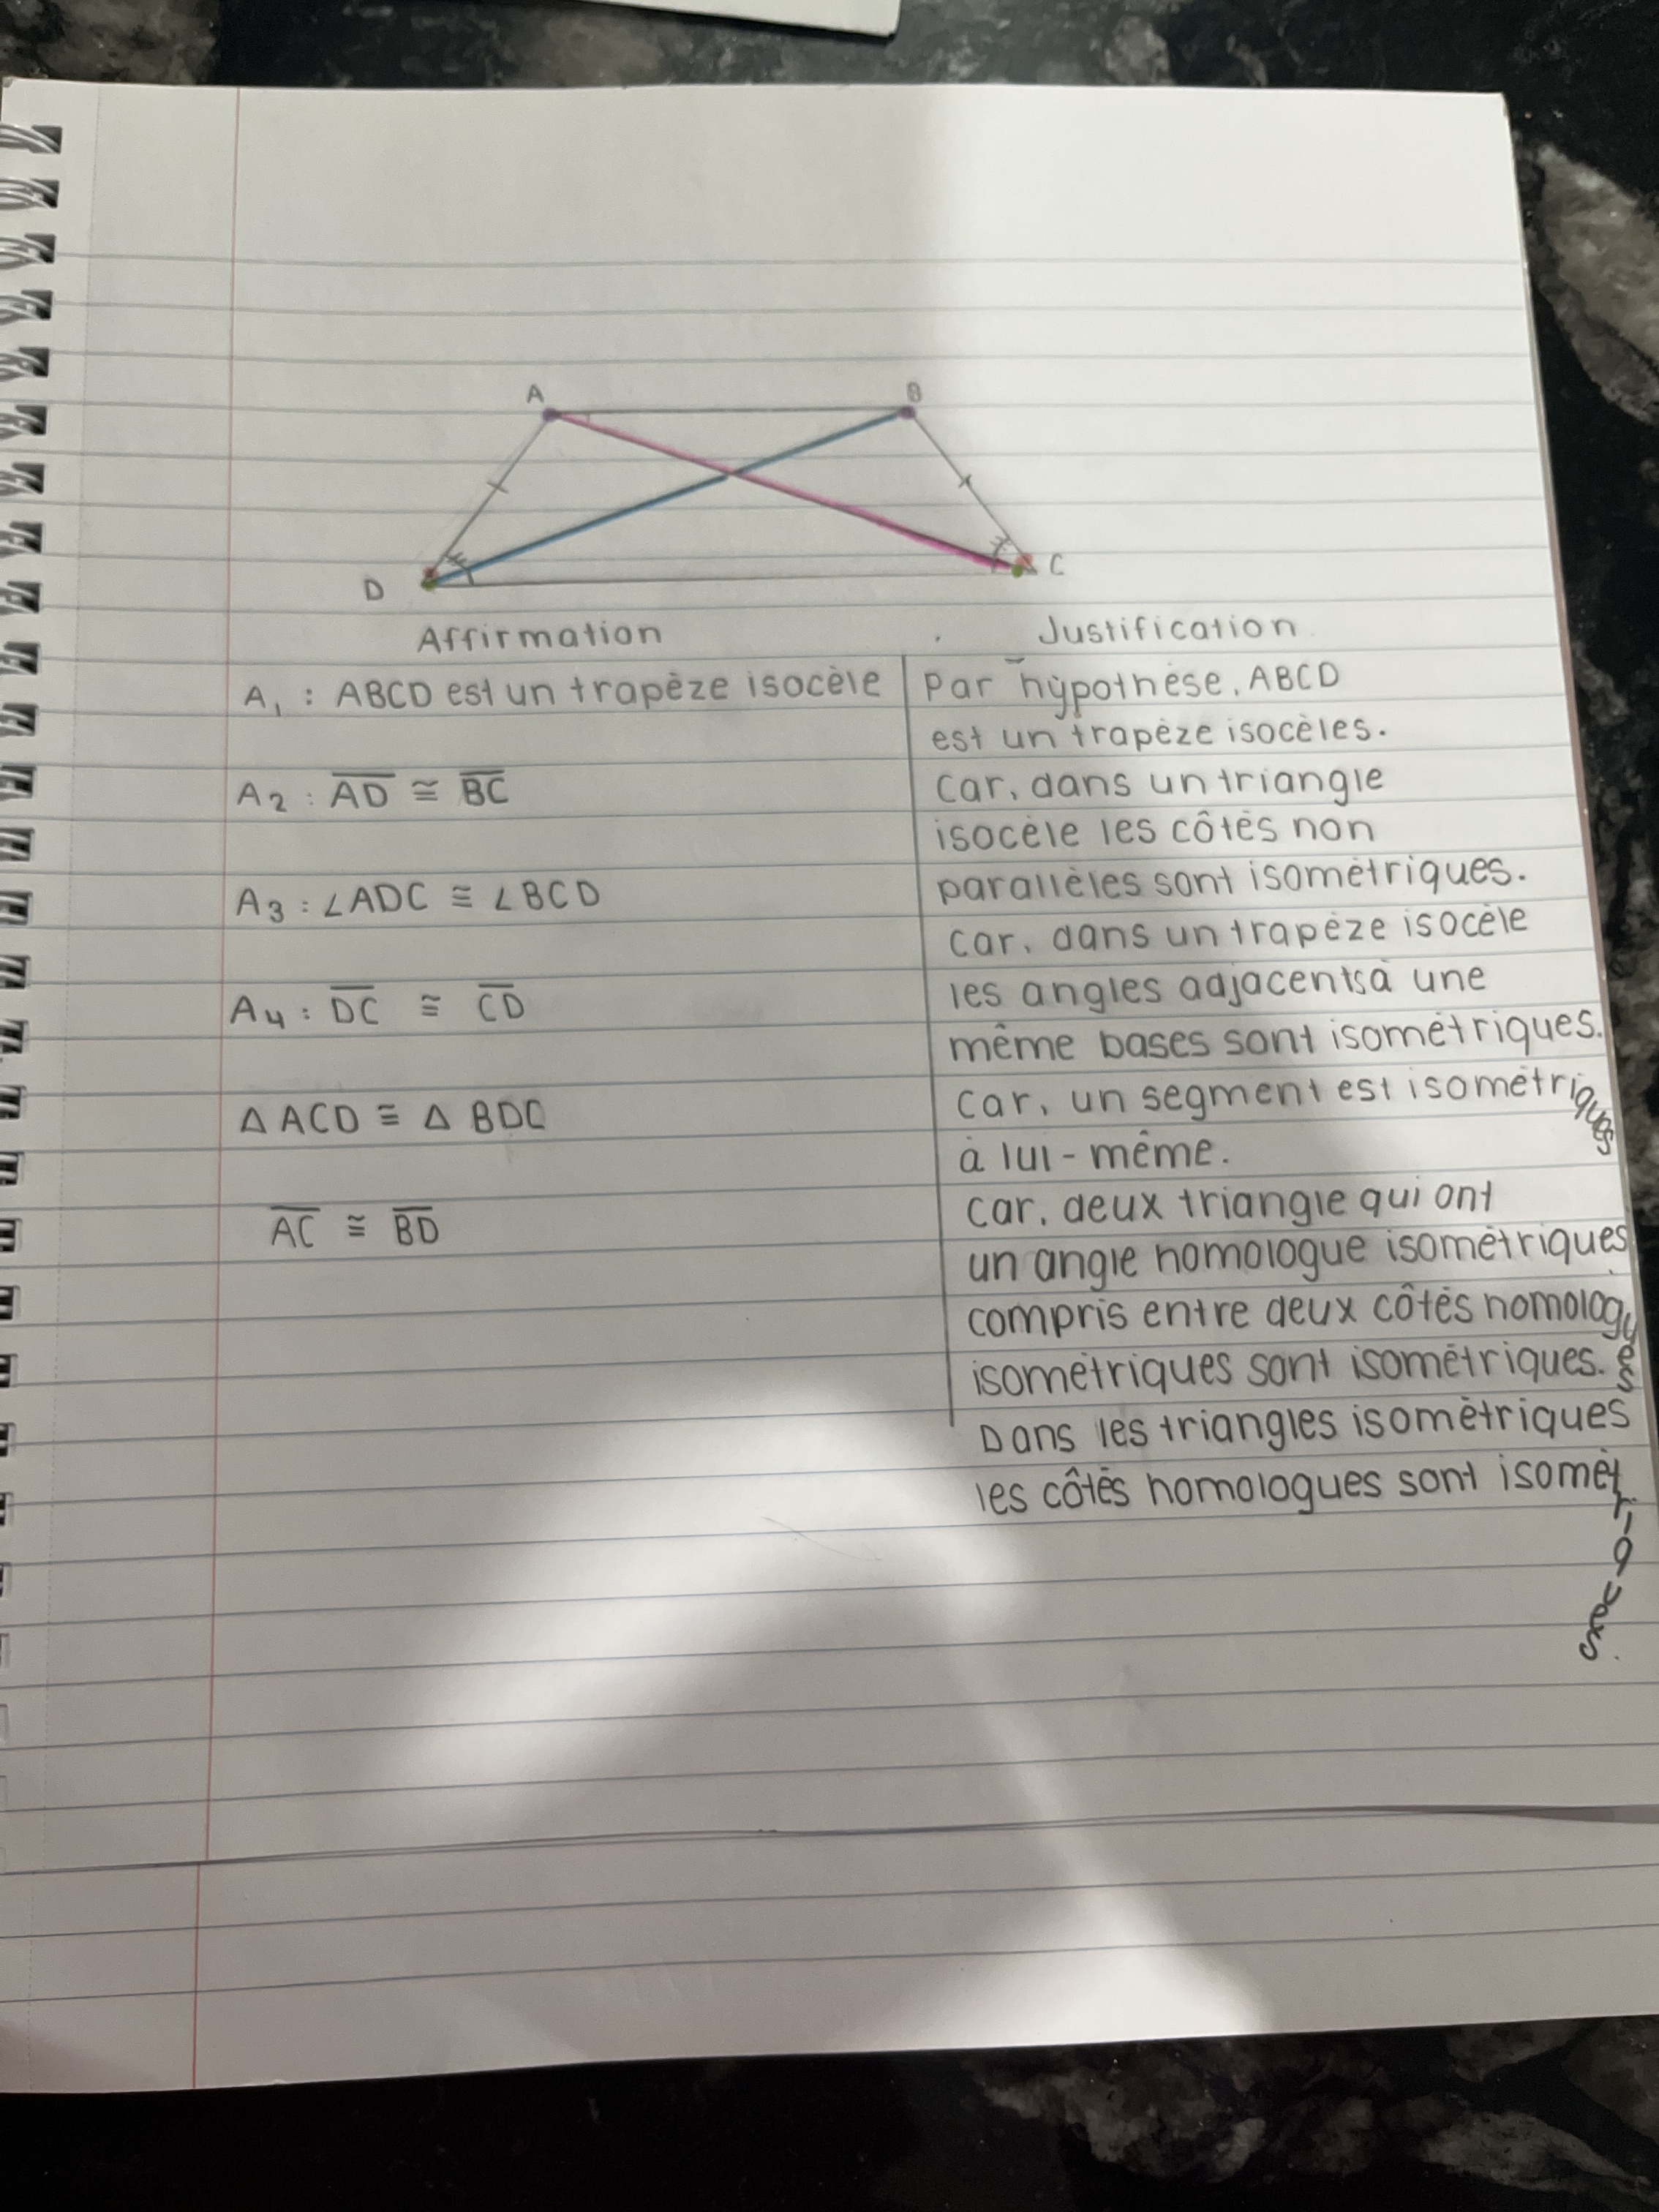 A B
D C
Affirmation Justification
A₁ : ABCD est un trapèze isocèle Par hypothèse, ABCD
est un trapèze isocèles.
A₂ : AD ≅ BC Car, dans un triangle
isocèle les côtés non
A₃ : ∠ADC ≅ ∠BCD parallèles sont isométriques.
Car, dans un trapèze isocèle
A₄ : DC ≅ CD les angles adjacents à une
même bases sont isométriques.
Δ ACD ≅ Δ BDC Car, un segment est isométriques
à lui-même.
AC ≅ BD Car, deux triangle qui ont
un angle homologue isométriques
compris entre deux côtés homologues
isométriques sont isométriques.
Dans les triangles isométriques
les côtés homologues sont isométriques.